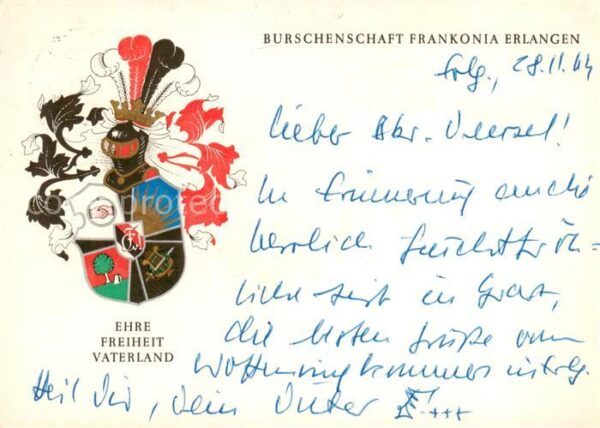 BURSCHENSCHAFT FRANKONIA ERLANGEN
Erlg., 28.11.64
Lieber Bbr.
In Erinnerung an die
herrlich feuchtfröh-
liche Zeit in Graz,
die besten Grüße vom
in Erlg.
Heil Dir, Dein Dieter
EHRE
FREIHEIT
VATERLAND